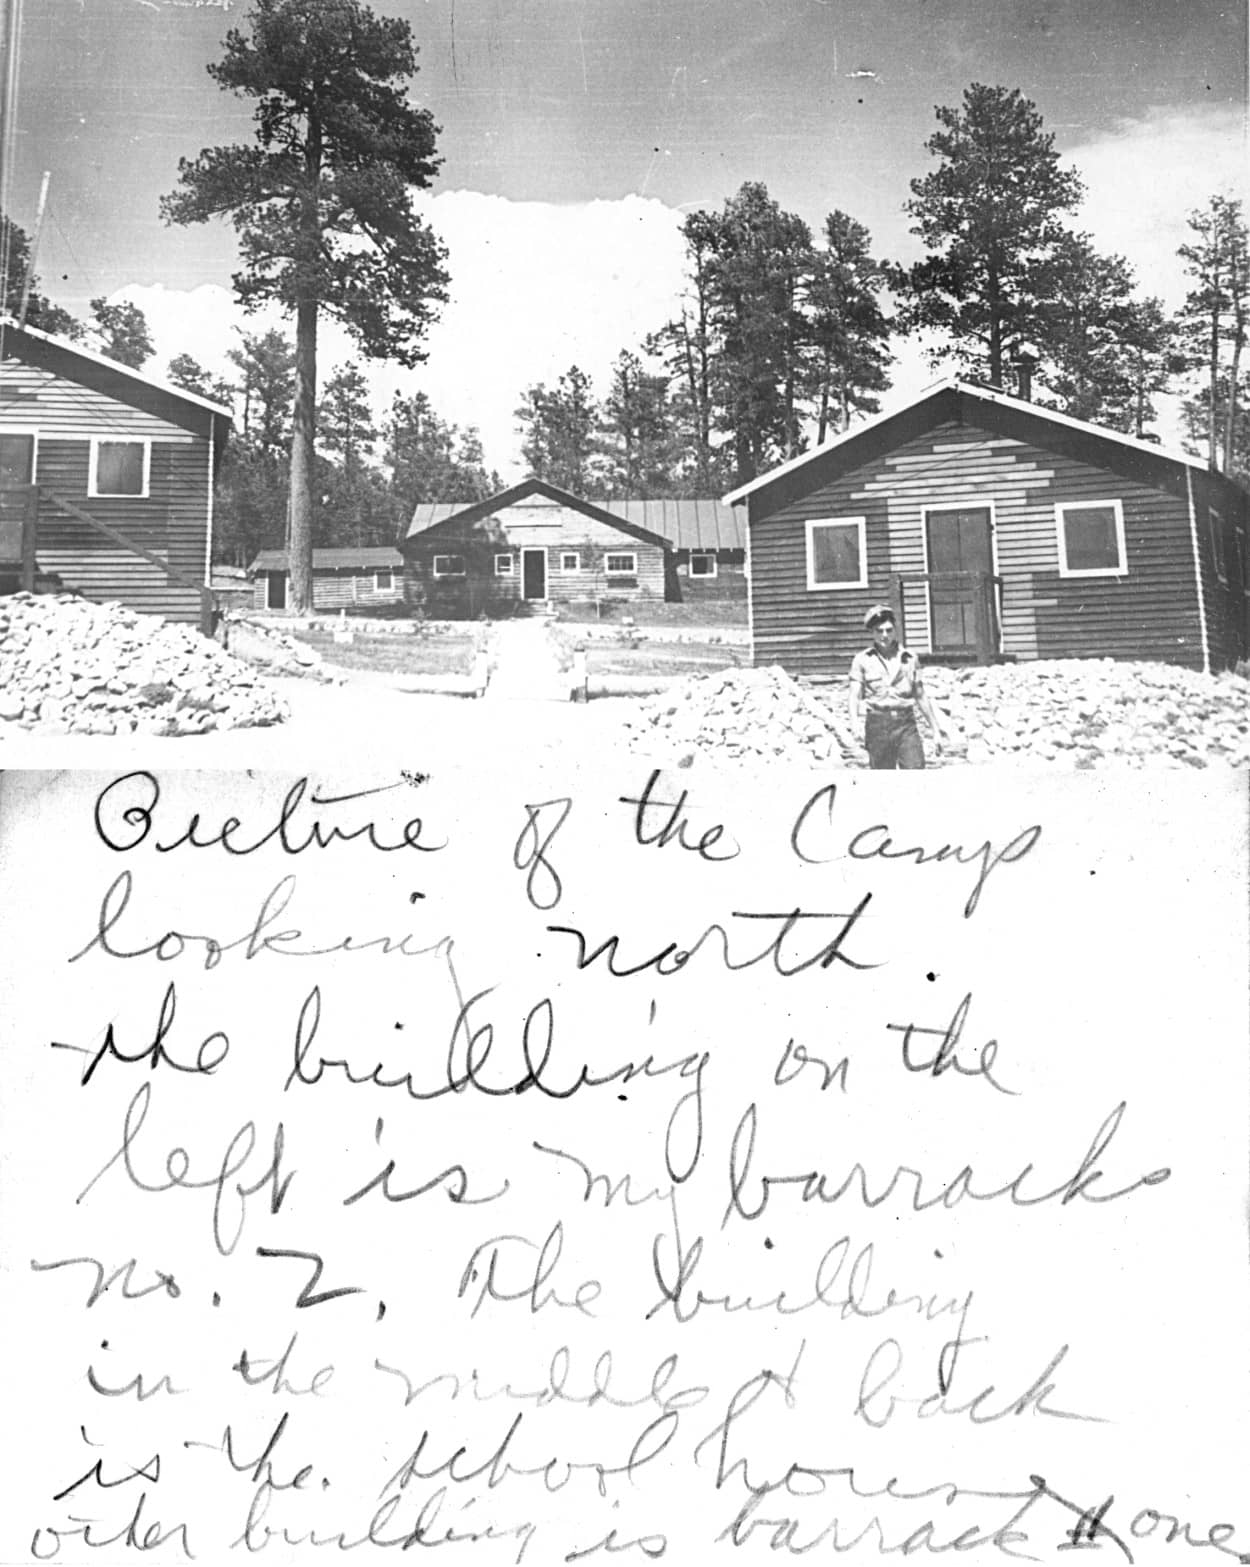 Picture of the Camp.
looking north.
the building on the
left is my barracks
no. 2. The building
in the middle & back
is the school house
other building is barrack # one